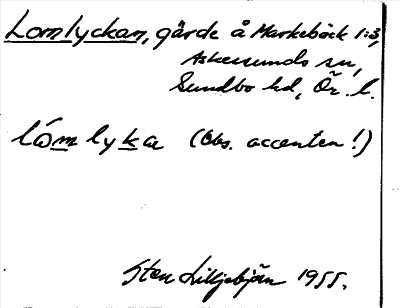 Lomlyckan, gärde å Markebäck 1:3,
Askersunds sn,
Sundbo hd, Ör. l.
lóm lyka (Obs. accenten!)
Sten Lilljebjörn 1955.